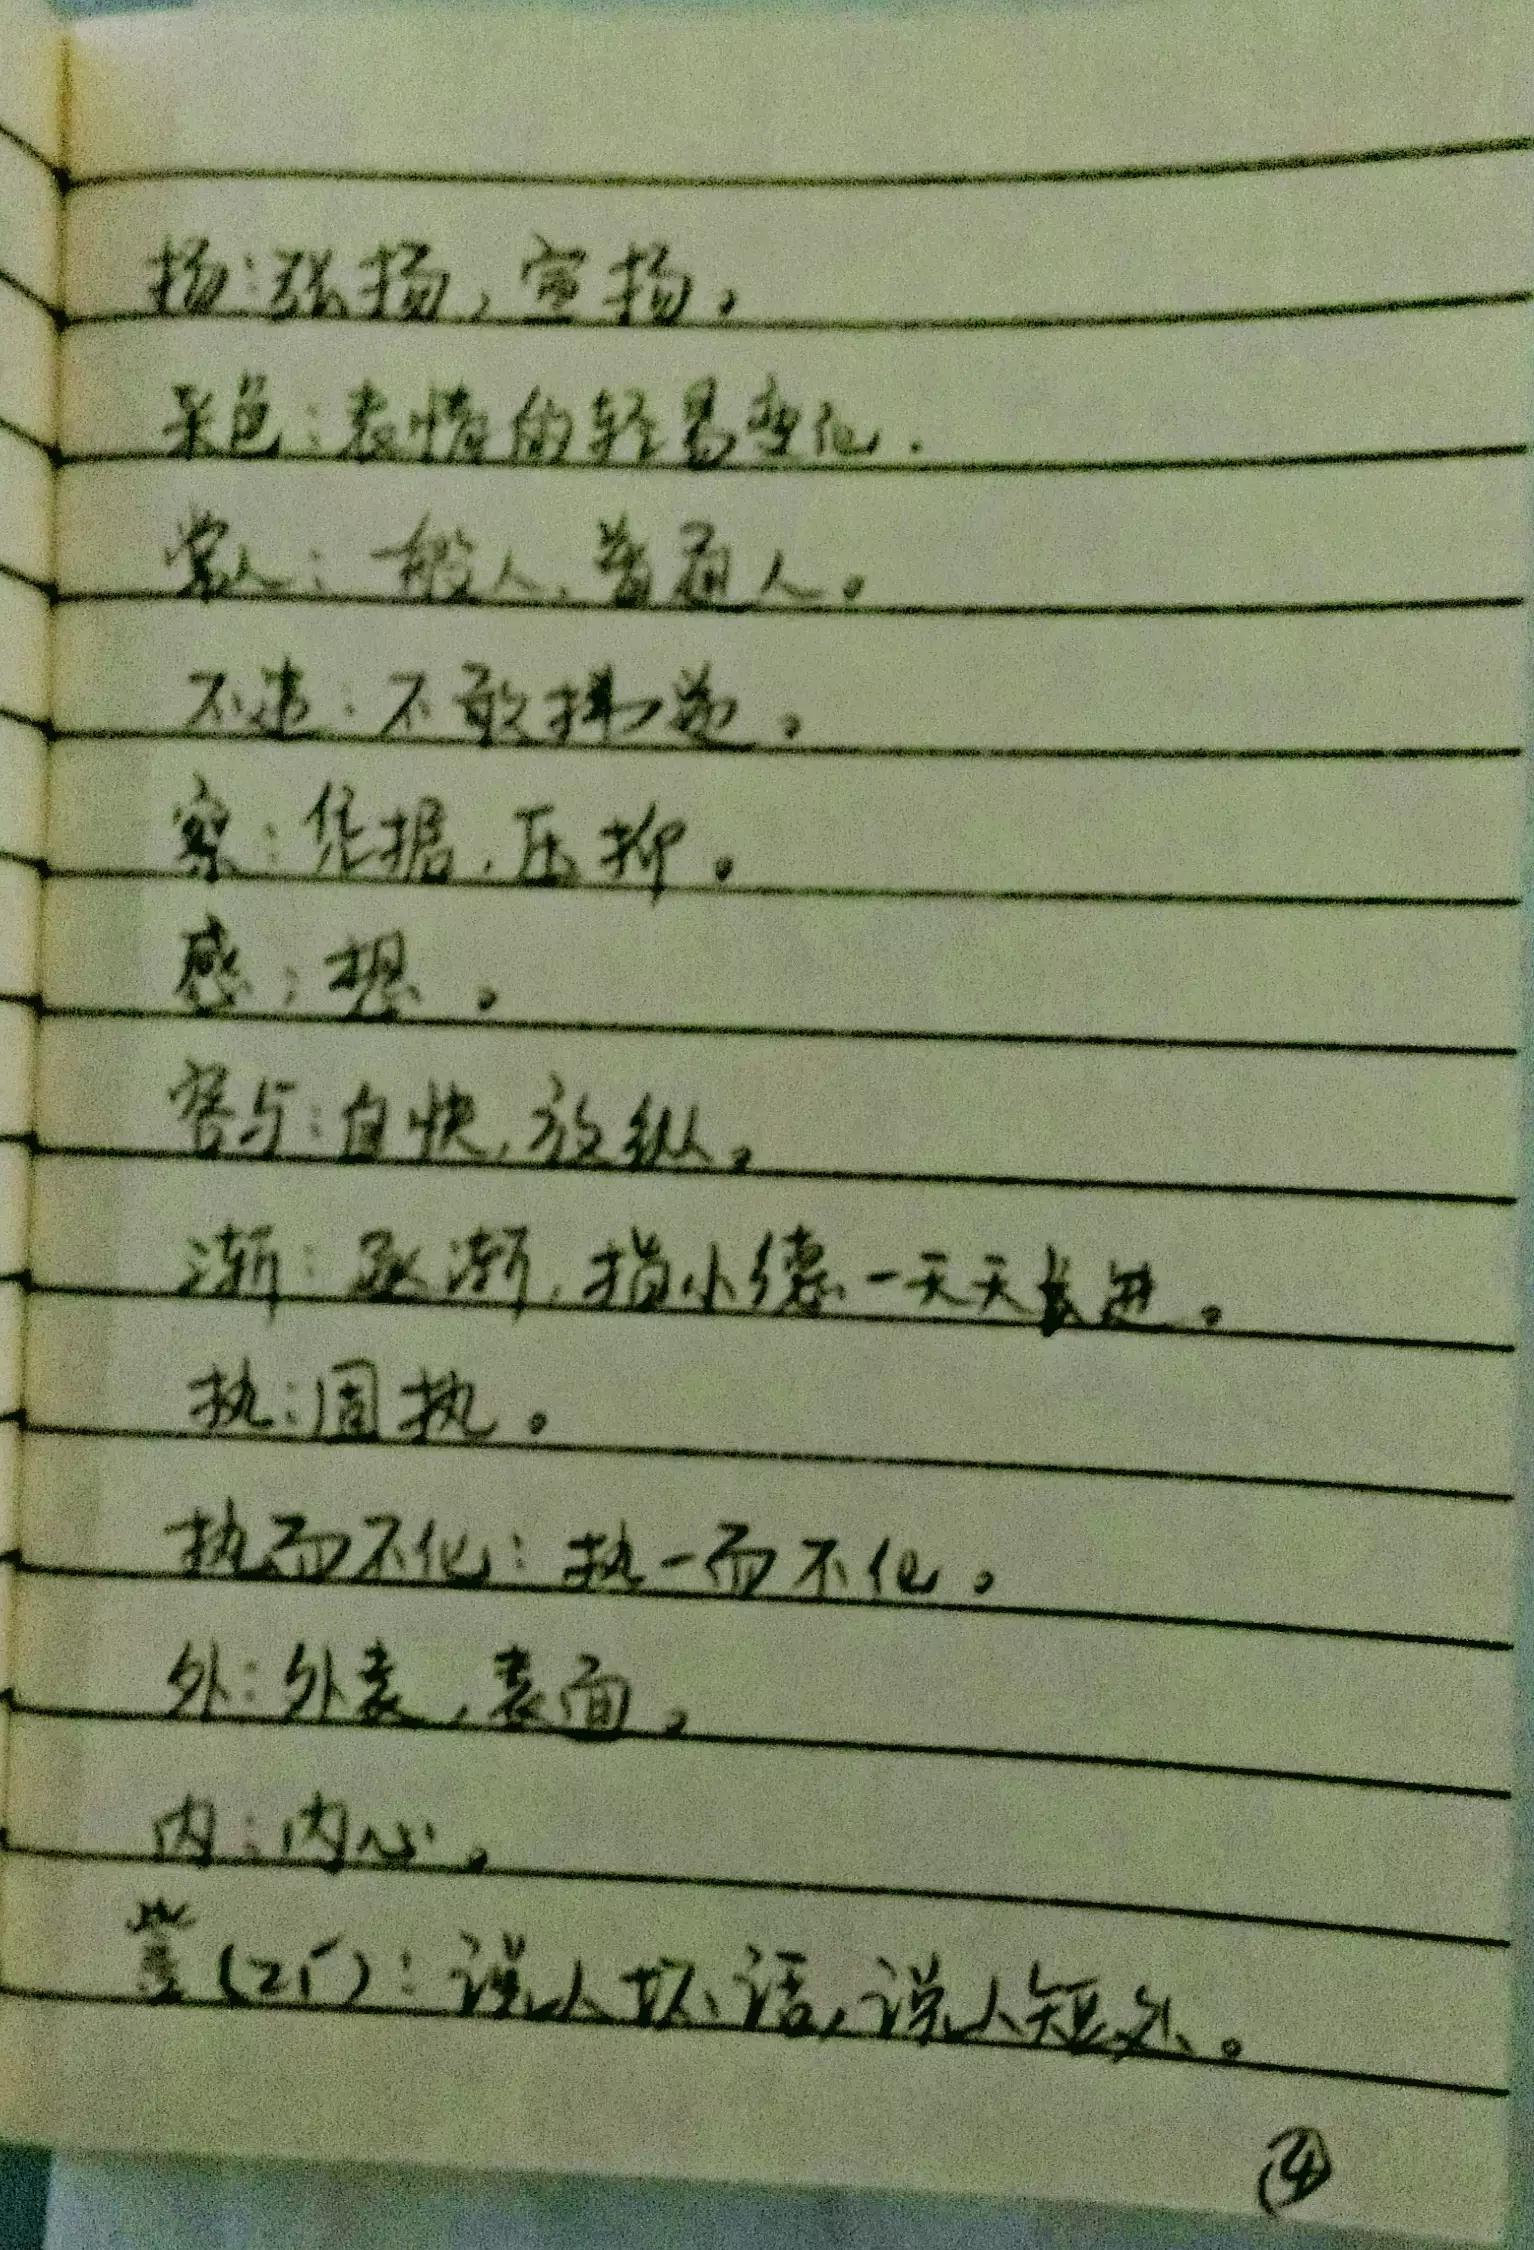 扬：张扬，宣扬。
采色：表情的轻易变化.
常人：一般人、普通人。
不违：不敢拂逆。
案：凭据，压抑。
感：想。
容与：自快，放纵。
渐：逐渐，指小德一天天长进。
执：固执。
执而不化：执一而不化。
外：外表，表面。
内：内心。
(zǐ)：说人坏话，说人短处。
④